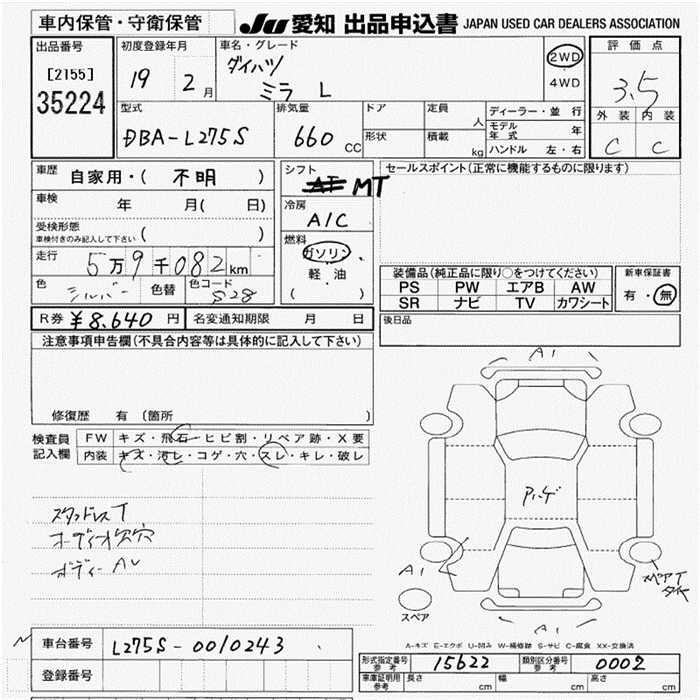 車内保管・守衛保管
JU 愛知 出品申込書 JAPAN USED CAR DEALERS ASSOCIATION
出品番号
[2155]
35224
初度登録年月
19 2 月
車名・グレード
ダイハツ
ミラ L
2WD
4WD
評価点
3.5
外装 内装
C C
型式
DBA-L275S
排気量
660 CC
ドア
形状
定員 人
積載 kg
ディーラー・並行
モデル年式 年
ハンドル 左・右
車歴 自家用・( 不明 )
車検 年 月( 日)
受検形態
車検付きのみ記入して下さい ( )
走行 5万9千082km
色 シルバー 色替 色コード S28
シフト
AT MT
冷房
A/C
燃料
ガソリン
軽油
( )
セールスポイント(正常に機能するものに限ります)
装備品(純正品に限り○をつけてください)
PS PW エアB AW
SR ナビ TV カワシート
新車保証書
有・無
R券 ¥8,640 円 名変通知期限 月 日
後日品
注意事項申告欄(不具合内容等は具体的に記入して下さい)
修復歴 有 (箇所 )
検査員記入欄
FW キズ・飛石・ヒビ割・リペア跡・X要
内装 キズ・汚レ・コゲ・穴・スレ・キレ・破レ
スタッドレスT
オーディオ欠穴
ボディーAU
A1
A1
A1
スペア
スペアTタイヤ
A-キズ E-エクボ U-凹み W-補修跡 S-サビ C-腐食 XX-交換済
車台番号 L275S-0010243
登録番号
形式指定番号 参考 15622 類別区分番号 参考 0002
車庫証明用 参考 長さ cm 幅 cm 高さ cm